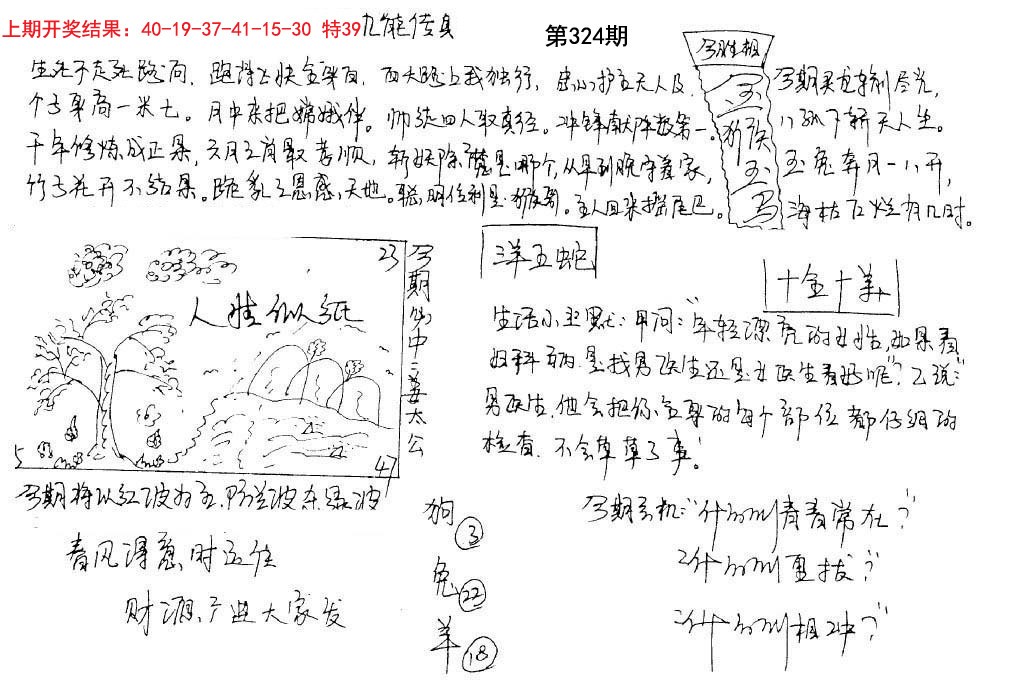 上期开奖结果：40-19-37-41-15-30 特39
九龍传真
第324期
今胜相
玉
猴
玉
马
今期买
尽光，
下轿天人生。
玉兔奔月一八开，
海枯石烂有几时。
生死不走
路向，跑得
快全
，西天路上我独行，忠心护主天人及，
个子身高一米七。月中来把嫦娥伴。师徒四人取真经。冲锋献阵数第一。
千年修炼成正果，六月之前最孝顺，斩妖除魔是哪个，从早到晚守着家，
竹子花开不结果。跪乳之恩感天地。聪明伶利是猴哥。主人回来摇尾巴。
23
人性似纸
5
47
今期仙中：姜太公
三羊五蛇
十金十羊
生活小幽默：甲问："年轻漂亮的女性，如果看
妇科病是找男医生还是女医生看好呢"？乙说：
男医生，他会把你全身的每个部位都仔细的
检查，不会草草了事！
今期将以红波为主，防兰波杀绿波
春风得意时运佳
财源产业大家发
狗 3
兔 22
羊 18
今期玄机："什么叫青春常在？"
"什么叫
拔？"
"什么叫相冲？"